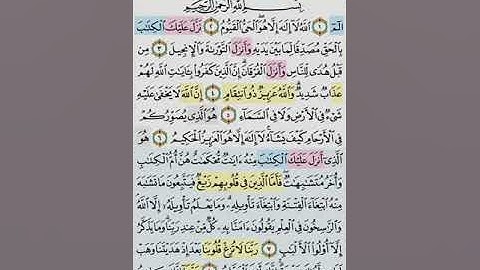 بِسْمِ اللَّهِ الرَّحْمَٰنِ الرَّحِيمِ
الٓمٓ ١ اللَّهُ لَا إِلَٰهَ إِلَّا هُوَ الْحَيُّ الْقَيُّومُ ٢ نَزَّلَ عَلَيْكَ الْكِتَٰبَ
بِالْحَقِّ مُصَدِّقًا لِّمَا بَيْنَ يَدَيْهِ وَأَنزَلَ التَّوْرَىٰةَ وَالْإِنجِيلَ ٣ مِن
قَبْلُ هُدًى لِّلنَّاسِ وَأَنزَلَ الْفُرْقَانَ إِنَّ الَّذِينَ كَفَرُوا بِـَٔايَٰتِ اللَّهِ لَهُمْ
عَذَابٌ شَدِيدٌ وَاللَّهُ عَزِيزٌ ذُو انتِقَامٍ ٤ إِنَّ اللَّهَ لَا يَخْفَىٰ عَلَيْهِ
شَيْءٌ فِي الْأَرْضِ وَلَا فِي السَّمَاءِ ٥ هُوَ الَّذِي يُصَوِّرُكُمْ
فِي الْأَرْحَامِ كَيْفَ يَشَاءُ لَا إِلَٰهَ إِلَّا هُوَ الْعَزِيزُ الْحَكِيمُ ٦ هُوَ
الَّذِي أَنزَلَ عَلَيْكَ الْكِتَٰبَ مِنْهُ ءَايَٰتٌ مُّحْكَمَٰتٌ هُنَّ أُمُّ الْكِتَٰبِ
وَأُخَرُ مُتَشَٰبِهَٰتٌ فَأَمَّا الَّذِينَ فِي قُلُوبِهِمْ زَيْغٌ فَيَتَّبِعُونَ مَا تَشَٰبَهَ
مِنْهُ ابْتِغَاءَ الْفِتْنَةِ وَابْتِغَاءَ تَأْوِيلِهِ وَمَا يَعْلَمُ تَأْوِيلَهُ إِلَّا اللَّهُ
وَالرَّٰسِخُونَ فِي الْعِلْمِ يَقُولُونَ ءَامَنَّا بِهِ كُلٌّ مِّنْ عِندِ رَبِّنَا وَمَا يَذَّكَّرُ
إِلَّا أُولُوا الْأَلْبَٰبِ ٧ رَبَّنَا لَا تُزِغْ قُلُوبَنَا بَعْدَ إِذْ هَدَيْتَنَا وَهَبْ